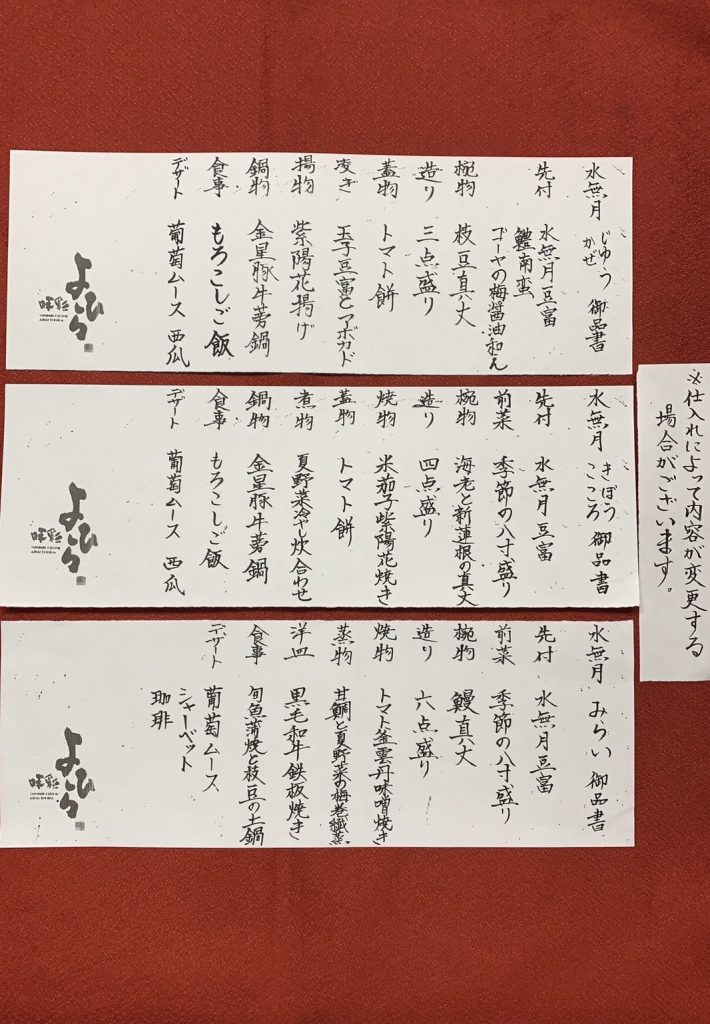 水無月 じゆう かぜ 御品書
先付 水無月豆富
鱧南蛮
ゴーヤの梅醤油和え
椀物 枝豆真丈
造り 三点盛り
蓋物 トマト餅
凌ぎ 玉子豆富とアボカド
揚物 紫陽花揚げ
鍋物 金星豚牛蒡鍋
食事 もろこしご飯
デザート 葡萄ムース 西瓜
よひら
水無月 きぼう こころ 御品書
先付 水無月豆富
前菜 季節の八寸盛り
椀物 海老と新蓮根の真丈
造り 四点盛り
焼物 米茄子紫陽花焼き
蓋物 トマト餅
煮物 夏野菜冷やし炊合わせ
鍋物 金星豚牛蒡鍋
食事 もろこしご飯
デザート 葡萄ムース 西瓜
よひら
水無月 みらい 御品書
先付 水無月豆富
前菜 季節の八寸盛り
椀物 鰻真丈
造り 六点盛り
焼物 トマト釜雲丹味噌焼き
蒸物 甘鯛と夏野菜の梅巻繊蒸
洋皿 黒毛和牛鉄板焼き
食事 旬魚蒲焼と枝豆の土鍋
デザート 葡萄ムース
シャーベット
珈琲
よひら
※仕入れによって内容が変更する
場合がございます。